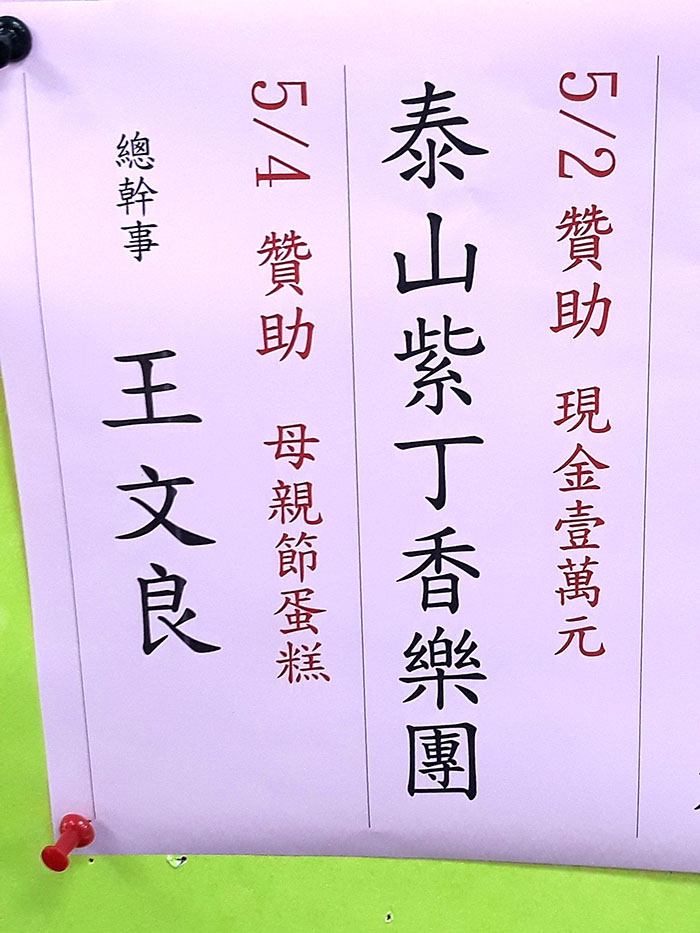 5/2 贊助 現金壹萬元
泰山紫丁香樂團
5/4 贊助 母親節蛋糕
總幹事 王文良